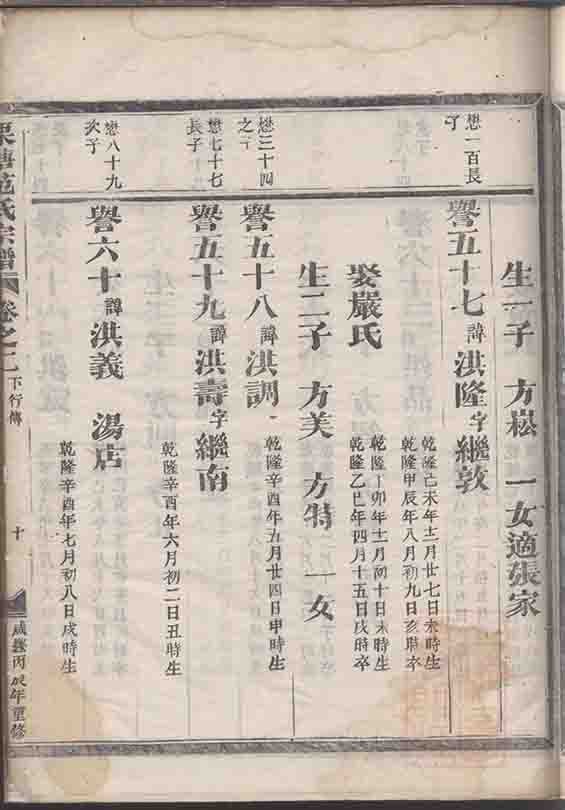 生一子 方崧 一女適張家
懋一百長子
譽五十七 諱洪隆 字繼敦
乾隆己未年十二月廿七日未時生
乾隆甲辰年八月初九日亥時卒
娶嚴氏
乾隆丁卯年十一月初十日未時生
乾隆乙巳年四月十五日戌時卒
生二子 方美 方特 一女
懋三十四之子
譽五十八 諱洪調
乾隆辛酉年五月廿四日申時生
懋七十七長子
譽五十九 諱洪壽 字繼南
乾隆辛酉年六月初二日丑時生
懋八十九次子
譽六十 諱洪義 湯店
乾隆辛酉年七月初八日戌時生
范氏宗譜 卷之二 下行傳 十 咸豐丙辰年重修